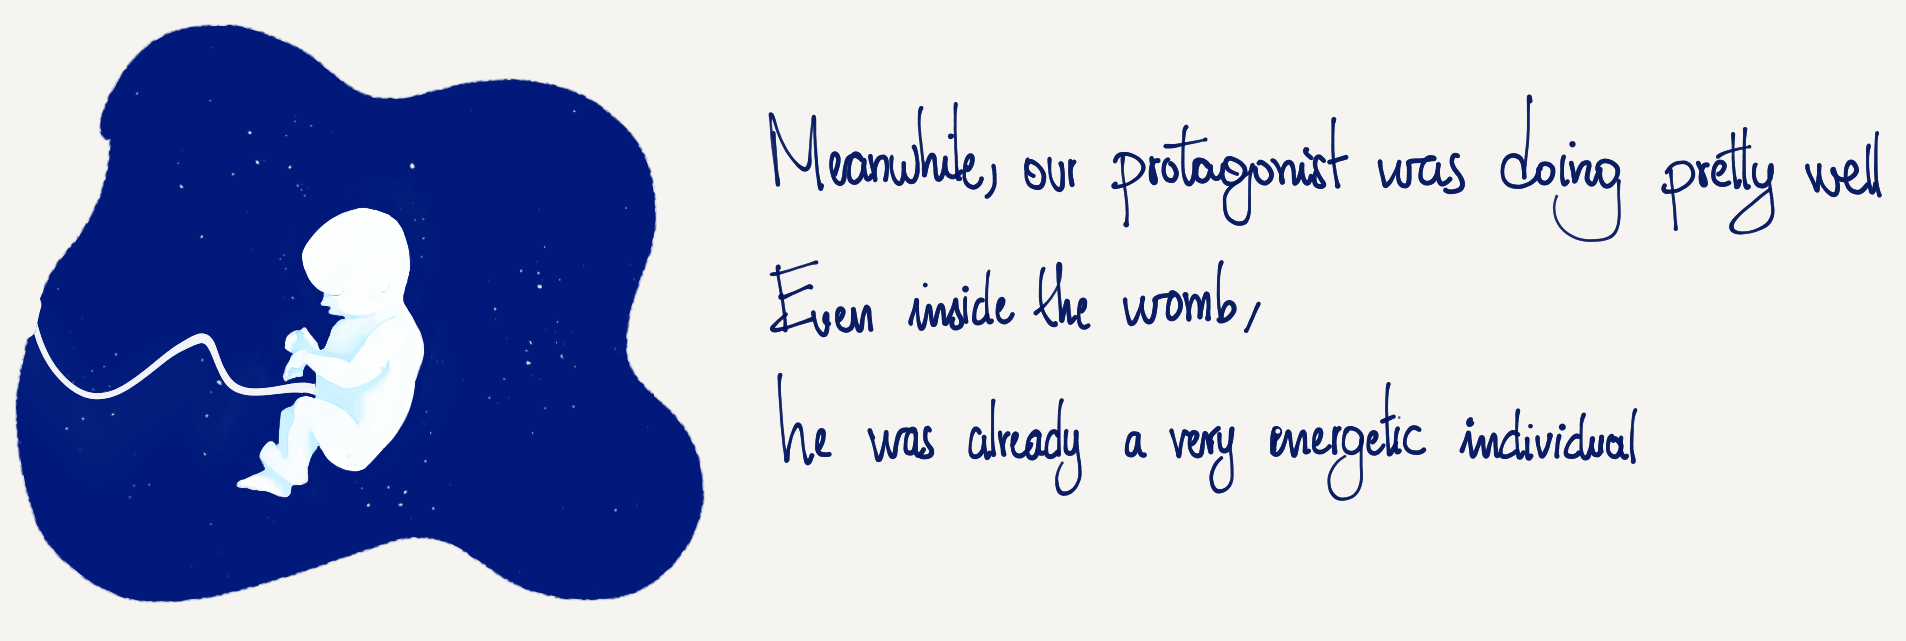 Meanwhile, our protagonist was doing pretty well
Even inside the womb,
he was already a very energetic individual